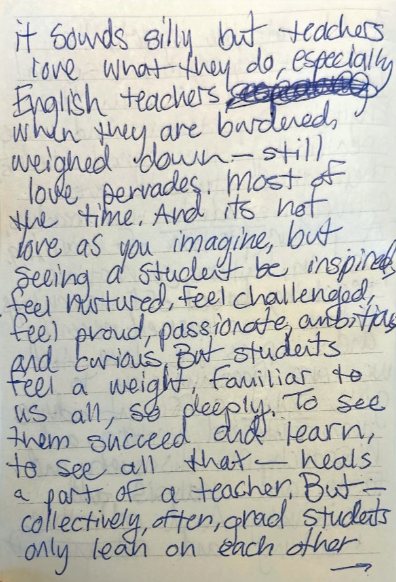 it sounds silly but teachers
love what they do, especially
English teachers
when they are burdened,
weighed down — still
love pervades. Most of
the time. And its not
love as you imagine, but
seeing a student be inspired,
feel nurtured, feel challenged,
feel proud, passionate, ambitious
and curious. But students
feel a weight, familiar to
us all, so deeply. To see
them succeed and learn,
to see all that — heals
a part of a teacher. But —
collectively, often, grad students
only lean on each other
→